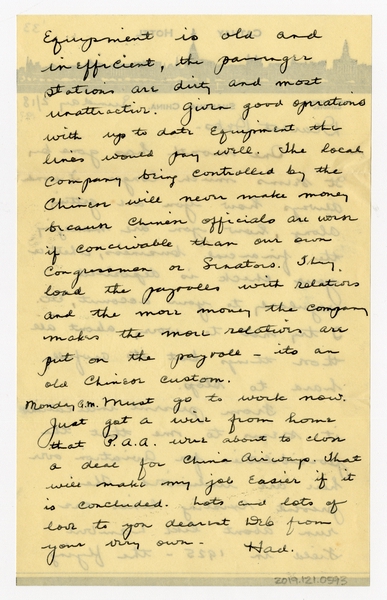 Equipment is old and
inefficient, the passenger
stations are dirty and most
unattractive. Given good operations
with up to date equipment the
lines would pay well. The local
company being controlled by the
Chinese will never make money
because Chinese officials are worse
if conceivable than our own
Congressmen or Senators. They
load the payrolls with relatives
and the more money the company
makes the more relatives are
put on the payroll - its an
old Chinese custom.
Monday a.m. Must go to work now.
Just got a wire from home
that P.A.A. were about to close
a deal for China Airways. That
will make my job easier if it
is concluded. Lots and lots of
love to you dearest Deb from
your very own - Had.
2019.121.0593